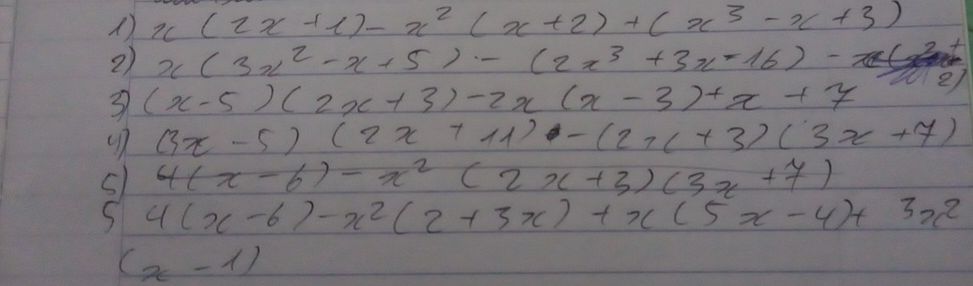 1) x(2x+1)-x²(x+2)+(x³-x+3)
2) x(3x²-x+5)-(2x³+3x-16)-
3) (x-5)(2x+3)-2x(x-3)+x+7
4) (3x-5)(2x+11)-(2x+3)(3x+7)
5) 4(x-6)-x²(2x+3)(3x+7)
5 4(x-6)-x²(2+3x)+x(5x-4)+3x²
(x-1)